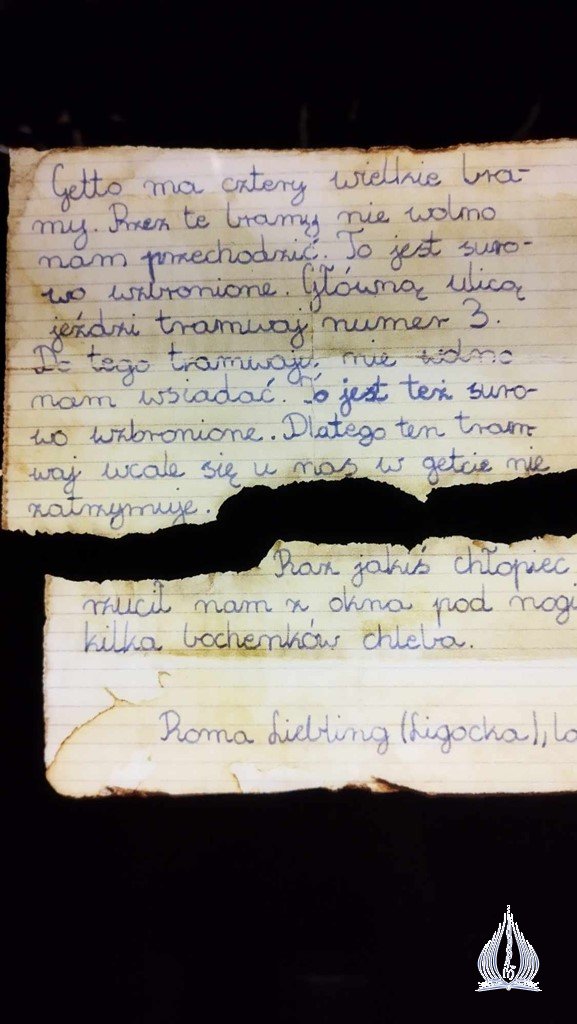 Getto ma cztery wielkie bra-
my. Przez te bramy nie wolno
nam przechodzić. To jest suro-
wo wzbronione. Główną ulicą
jeździ tramwaj numer 3.
Do tego tramwaju nie wolno
nam wsiadać. To jest też suro-
wo wzbronione. Dlatego ten tram-
waj wcale się u nas w getcie nie
zatrzymuje.
Raz jakiś chłopiec
rzucił nam z okna pod nogi
kilka bochenków chleba.
Roma Liebling (Ligocka), la